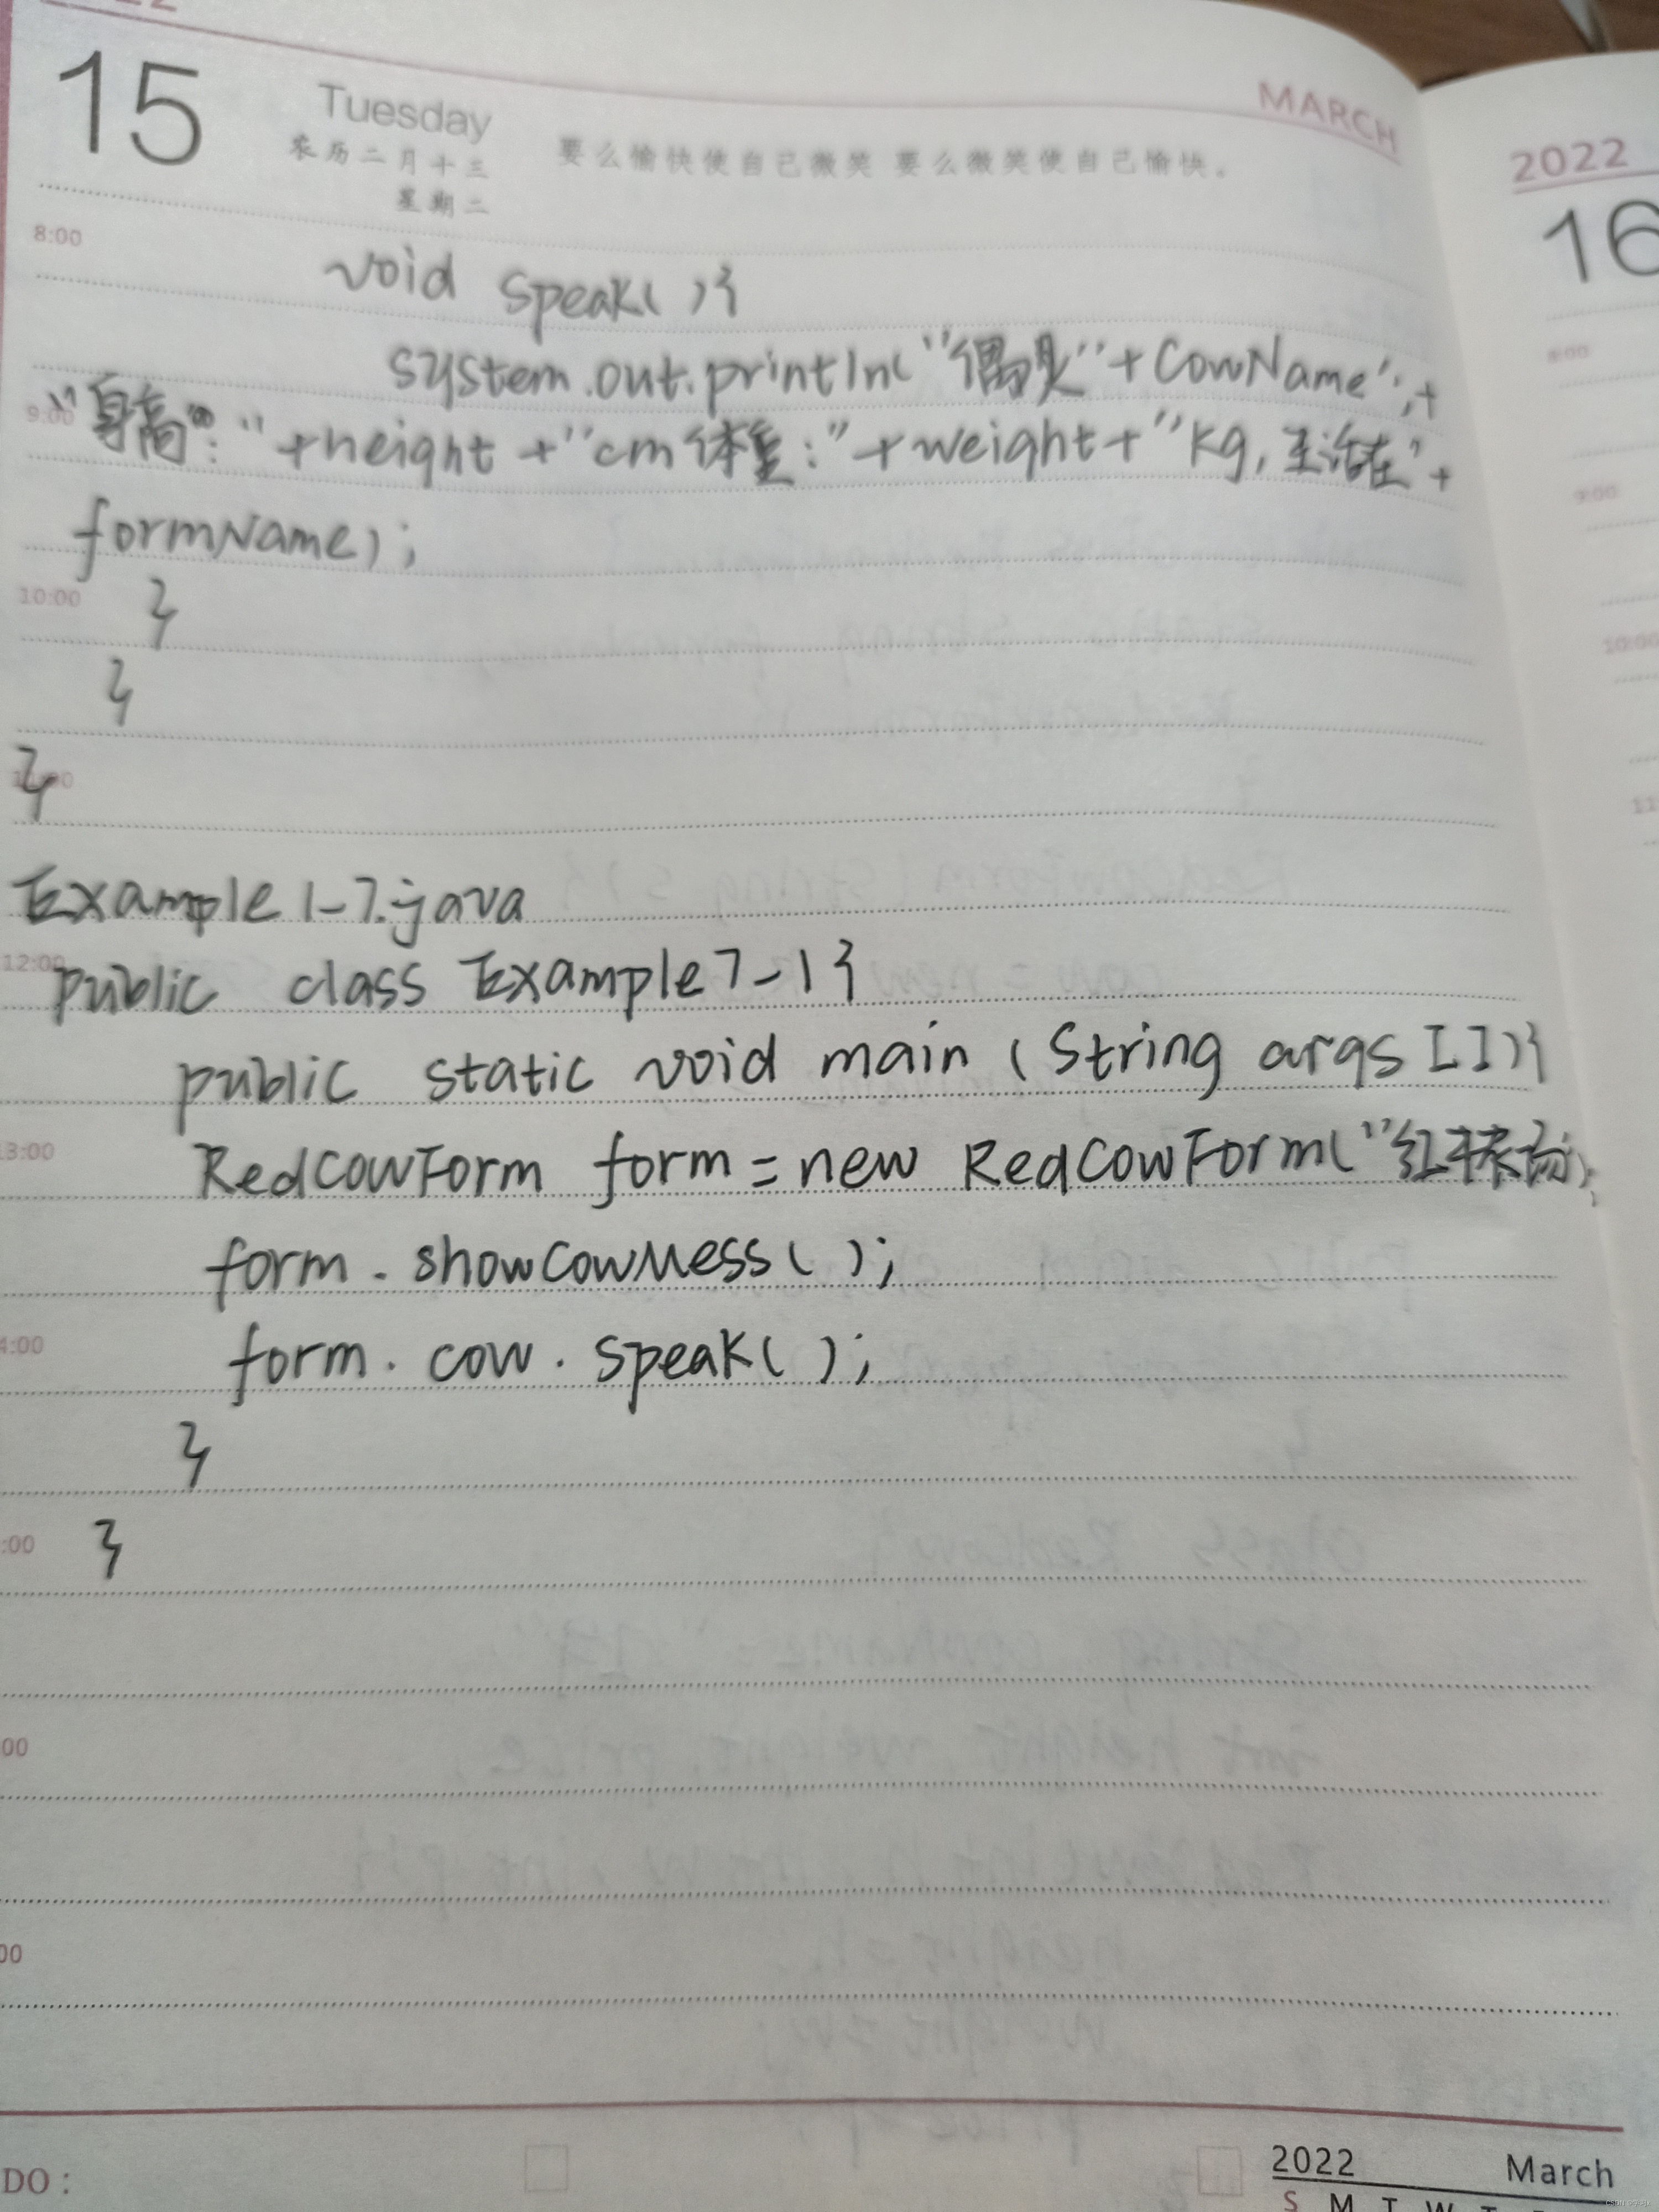 15
Tuesday
MARCH
农历二月十三
要么愉快使自己微笑 要么微笑使自己愉快。
星期二
2022
16
8:00
void speak( ){
system.out.println("偶是"+CowName",+
9:00
"身高": "+height+"cm 体重:"+weight+"kg,生活在"+
formName);
10:00
}
}
11:00
}
Example 1-7.java
12:00
public class Example7-1{
public static void main (String args[]){
13:00
RedCowForm form=new RedCowForm("红牛
form.showCowMess( );
4:00
form.cow.speak( );
}
:00
}
00
00
DO:
2022 March
S M T W T
8:00
9:00
10:00